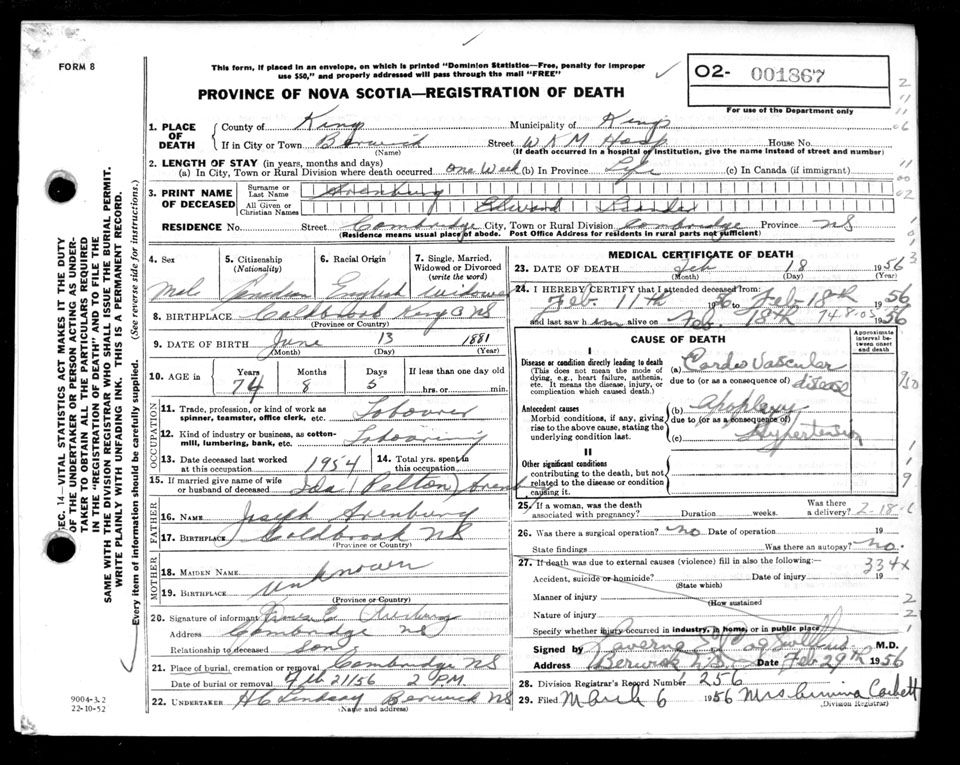 FORM 8
This form, if placed in an envelope, on which is printed "Dominion Statistics—Free, penalty for improper
use $50," and properly addressed will pass through the mail "FREE"
O2- 001867
For use of the Department only
PROVINCE OF NOVA SCOTIA—REGISTRATION OF DEATH
1. PLACE OF DEATH
County of Kings Municipality of Kings
If in City or Town Berwick Street W K M Hosp House No.
(Name) (If death occurred in a hospital or institution, give the name instead of street and number)
2. LENGTH OF STAY (in years, months and days)
(a) In City, Town or Rural Division where death occurred One Week (b) In Province Life (c) In Canada (if immigrant)
3. PRINT NAME OF DECEASED
Surname or Last Name Arenburg
All Given or Christian Names Edward Leander
RESIDENCE No. Street Cambridge City, Town or Rural Division Cambridge Province NS
(Residence means usual place of abode. Post Office Address for residents in rural parts not sufficient)
4. Sex
5. Citizenship (Nationality)
6. Racial Origin
7. Single, Married, Widowed or Divorced (write the word)
Male Canadian English Widower
8. BIRTHPLACE Coldbrook Kings Co NS
(Province or Country)
9. DATE OF BIRTH June 13 1881
(Month) (Day) (Year)
10. AGE in Years Months Days If less than one day old
74 8 5 hrs. or min.
OCCUPATION
11. Trade, profession, or kind of work as spinner, teamster, office clerk, etc. Labourer
12. Kind of industry or business, as cotton-mill, lumbering, bank, etc. Labouring
13. Date deceased last worked at this occupation 1954
14. Total yrs. spent in this occupation
15. If married give name of wife or husband of deceased Ida (Pelton) Arenburg
FATHER
16. NAME Joseph Arenburg
17. BIRTHPLACE Coldbrook NS
(Province or Country)
MOTHER
18. MAIDEN NAME
Unknown
19. BIRTHPLACE
(Province or Country)
20. Signature of informant
Address Cambridge NS
Relationship to deceased son
21. Place of burial, cremation or removal Cambridge NS
Date of burial or removal Feb 21/56 2 PM
22. UNDERTAKER H C Lindsay Berwick NS
(Name and address)
MEDICAL CERTIFICATE OF DEATH
23. DATE OF DEATH Feb 18 1956
(Month) (Day) (Year)
24. I HEREBY CERTIFY that I attended deceased from
Feb. 11th 1956 to Feb 18th 1956
and last saw him alive on Feb. 18th 1956
74-8-05
CAUSE OF DEATH
Approximate interval between onset and death
I
Disease or condition directly leading to death
(This does not mean the mode of dying, e.g., heart failure, asthenia, etc. It means the disease, injury, or complication which caused death.)
(a) Cardio Vascular
due to (or as a consequence of) disease
Antecedent causes
Morbid conditions, if any, giving rise to the above cause, stating the underlying condition last.
(b) Apoplexy
due to (or as a consequence of)
(c) Hypertension
II
Other significant conditions
contributing to the death, but not related to the disease or condition causing it.
25. If a woman, was the death associated with pregnancy? Duration weeks. Was there a delivery? 2-18-
26. Was there a surgical operation? no Date of operation 19
State findings Was there an autopsy? no.
27. If death was due to external causes (violence) fill in also the following:
334x
Accident, suicide or homicide? Date of injury 19
(State which)
Manner of injury
(How sustained)
Nature of injury
Specify whether injury occurred in industry, in home, or in public place
Signed by M.D.
Address Berwick N.S. Date Feb 29th 1956
28. Division Registrar's Record Number 256
29. Filed March 6 1956 Mrs Corbett
(Division Registrar)
SEC. 14—VITAL STATISTICS ACT MAKES IT THE DUTY
OF THE UNDERTAKER OR PERSON ACTING AS UNDER-
TAKER TO OBTAIN ALL THE PARTICULARS REQUIRED
IN THE "REGISTRATION OF DEATH" AND TO FILE THE
SAME WITH THE DIVISION REGISTRAR WHO SHALL ISSUE THE BURIAL PERMIT.
WRITE PLAINLY WITH UNFADING INK. THIS IS A PERMANENT RECORD.
Every item of information should be carefully supplied. (See reverse side for instructions.)
9004-3.2
22-10-52